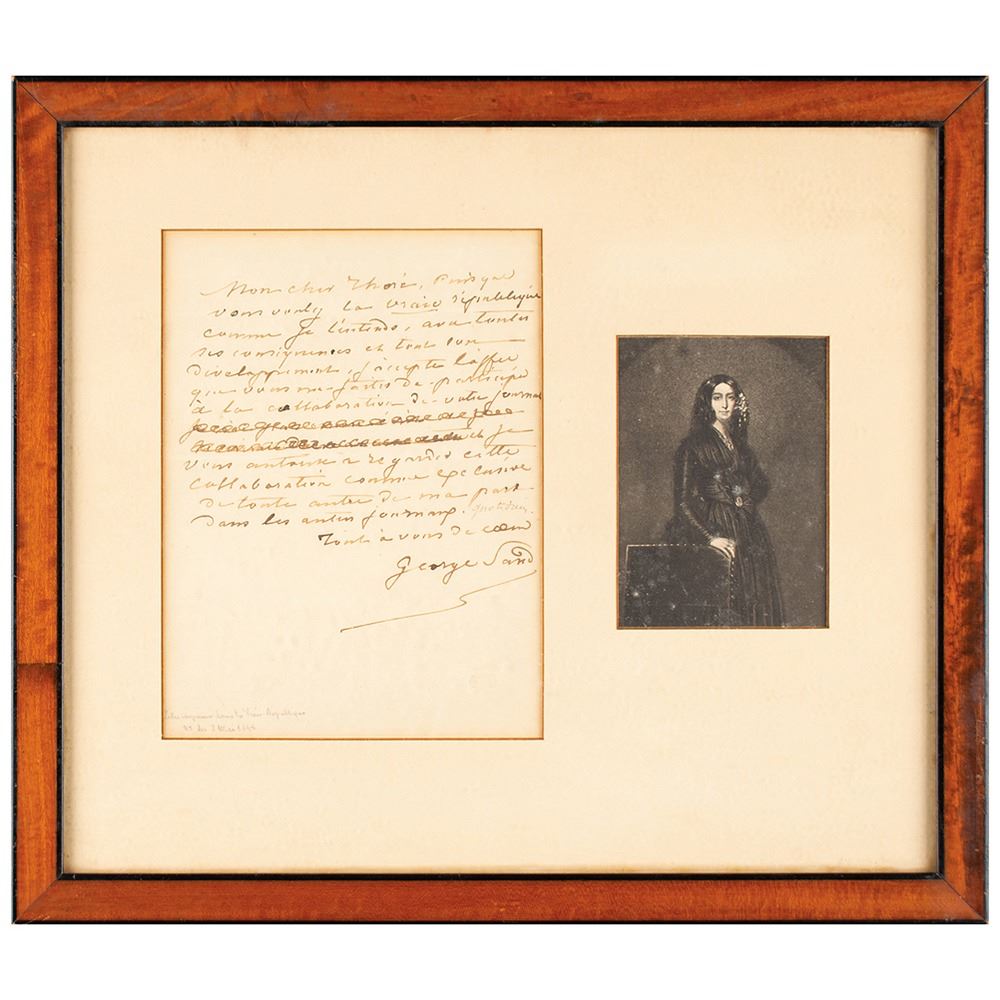 Mon cher Thoré, Puisque
vous voulez la vraie république
comme je l'entends, avec toutes
ses conséquences et tout son
développement, j'accepte l'offre
que vous me faites de participer
à la collaboration de votre journal
et je
vous autorise à regarder cette
collaboration comme exclusive
de toute autre de ma part
dans les autres journaux quotidiens.
Tout à vous de cœur
George Sand
République